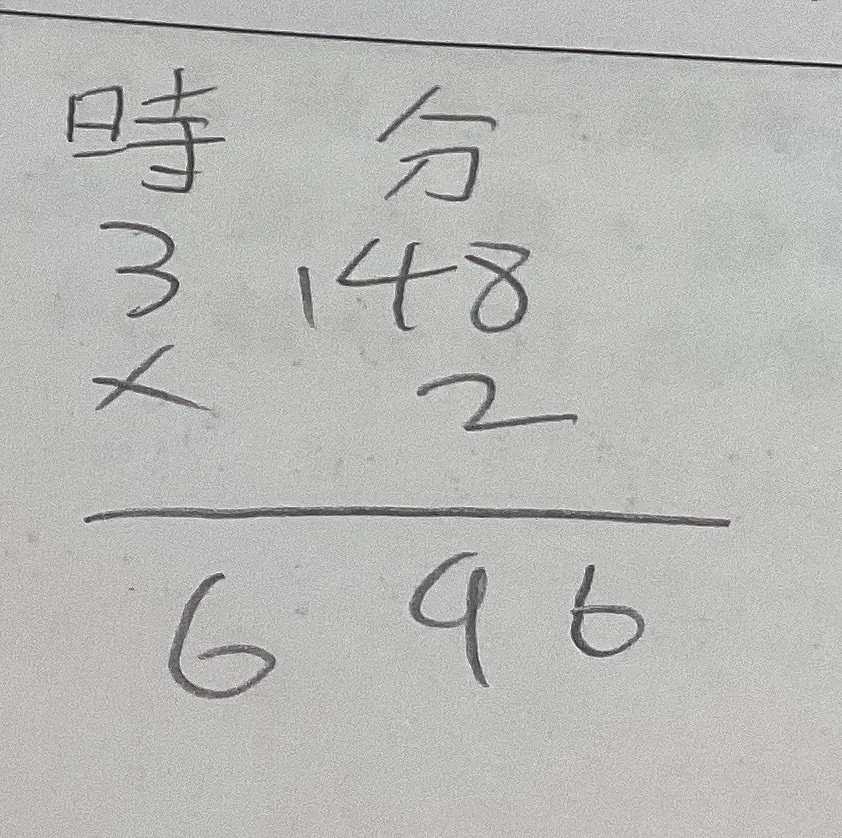 時 分
3 ,48
× 2
6 96